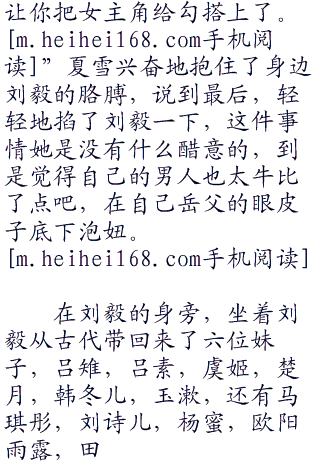 让你把女主角给勾搭上了。
[m.heihei168.com手机阅
读]”夏雪兴奋地抱住了身边
刘毅的胳膊，说到最后，轻
轻地掐了刘毅一下，这件事
情她是没有什么醋意的，到
是觉得自己的男人也太牛比
了点吧，在自己岳父的眼皮
子底下泡妞。
[m.heihei168.com手机阅读]
在刘毅的身旁，坐着刘
毅从古代带回来了六位妹
子，吕雉，吕素，虞姬，楚
月，韩冬儿，玉漱，还有马
琪彤，刘诗儿，杨蜜，欧阳
雨露，田